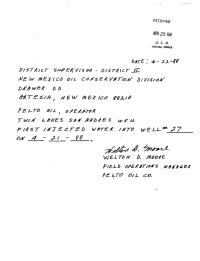 RECEIVED
APR 25 '88
O. C. D.
ARTESIA, OFFICE
DATE: 4-22-88
DISTRICT SUPERVISOR - DISTRICT II
NEW MEXICO OIL CONSERVATION DIVISION
DRAWER DD
ARTESIA, NEW MEXICO 88210
PELTO OIL, OPERATOR
TWIN LAKES SAN ANDRES WFU
FIRST INJECTED WATER INTO WELL # 27
ON 4-21-88.
Welton D. Moore
WELTON D. MOORE
FIELD OPERATIONS MANAGER
PELTO OIL CO.